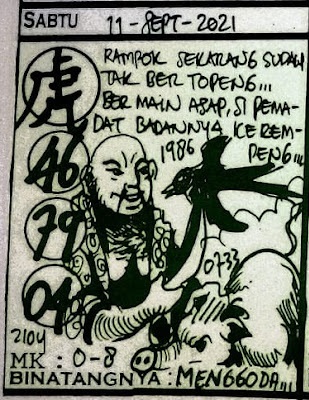 SABTU 11-SEPT-2021
RAMPOK SEKARANG SUDAH
TAK BER TOPENG...
BER MAIN ASAP, SI PEMA-
DAT BADANNYA KEREM-
PENG...
1986
虎
46
79
04
0733
2104
MK : 0-8
BINATANGNYA : MENGGODA...